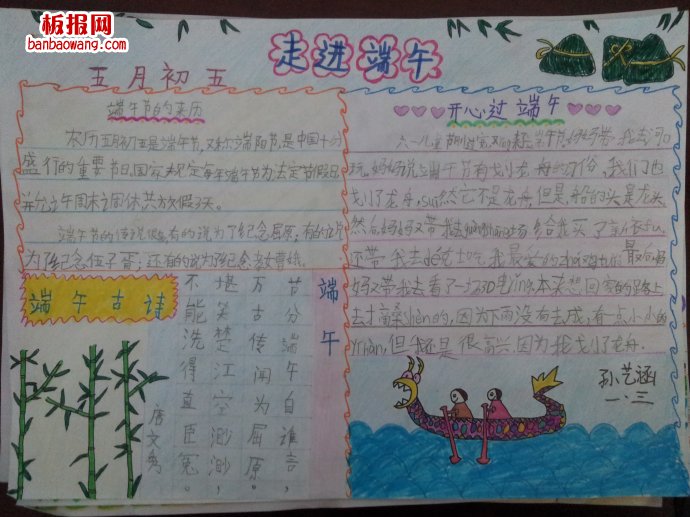 板报网
banbaowang.com
走进端午
五月初五
端午节的来历
农历五月初五是端午节,又称端阳节,是中国十分
盛行的重要节日,国家规定每年端午节为法定节假日
并把上午周末之团体共放假3天。
端午节的传说很多有的说为了纪念屈原;有的说
为了纪念伍子胥;还有的说为了纪念孝女曹娥。
端午古诗
端午
节分端午自谁言,
万古传闻为屈原。
堪笑楚江空渺渺,
不能洗得直臣冤。
唐文秀
开心过端午
六一儿童
妈妈带我去河
玩,妈妈说端午节有划龙舟的习俗,我们也
划了龙舟,sui然它不是龙舟,但是,船的头是龙头
然后妈妈又带我去
场给我买了新衣fu,
还带我去肯德士吃我最爱的
最后妈
妈又带我去看了一次3D电ying,本来想回家的路上
去才桑shen的,因为下雨没有去成,有一点小小的
yi han,但我还是很高兴,因为我划了龙舟。
孙艺涵
一、三